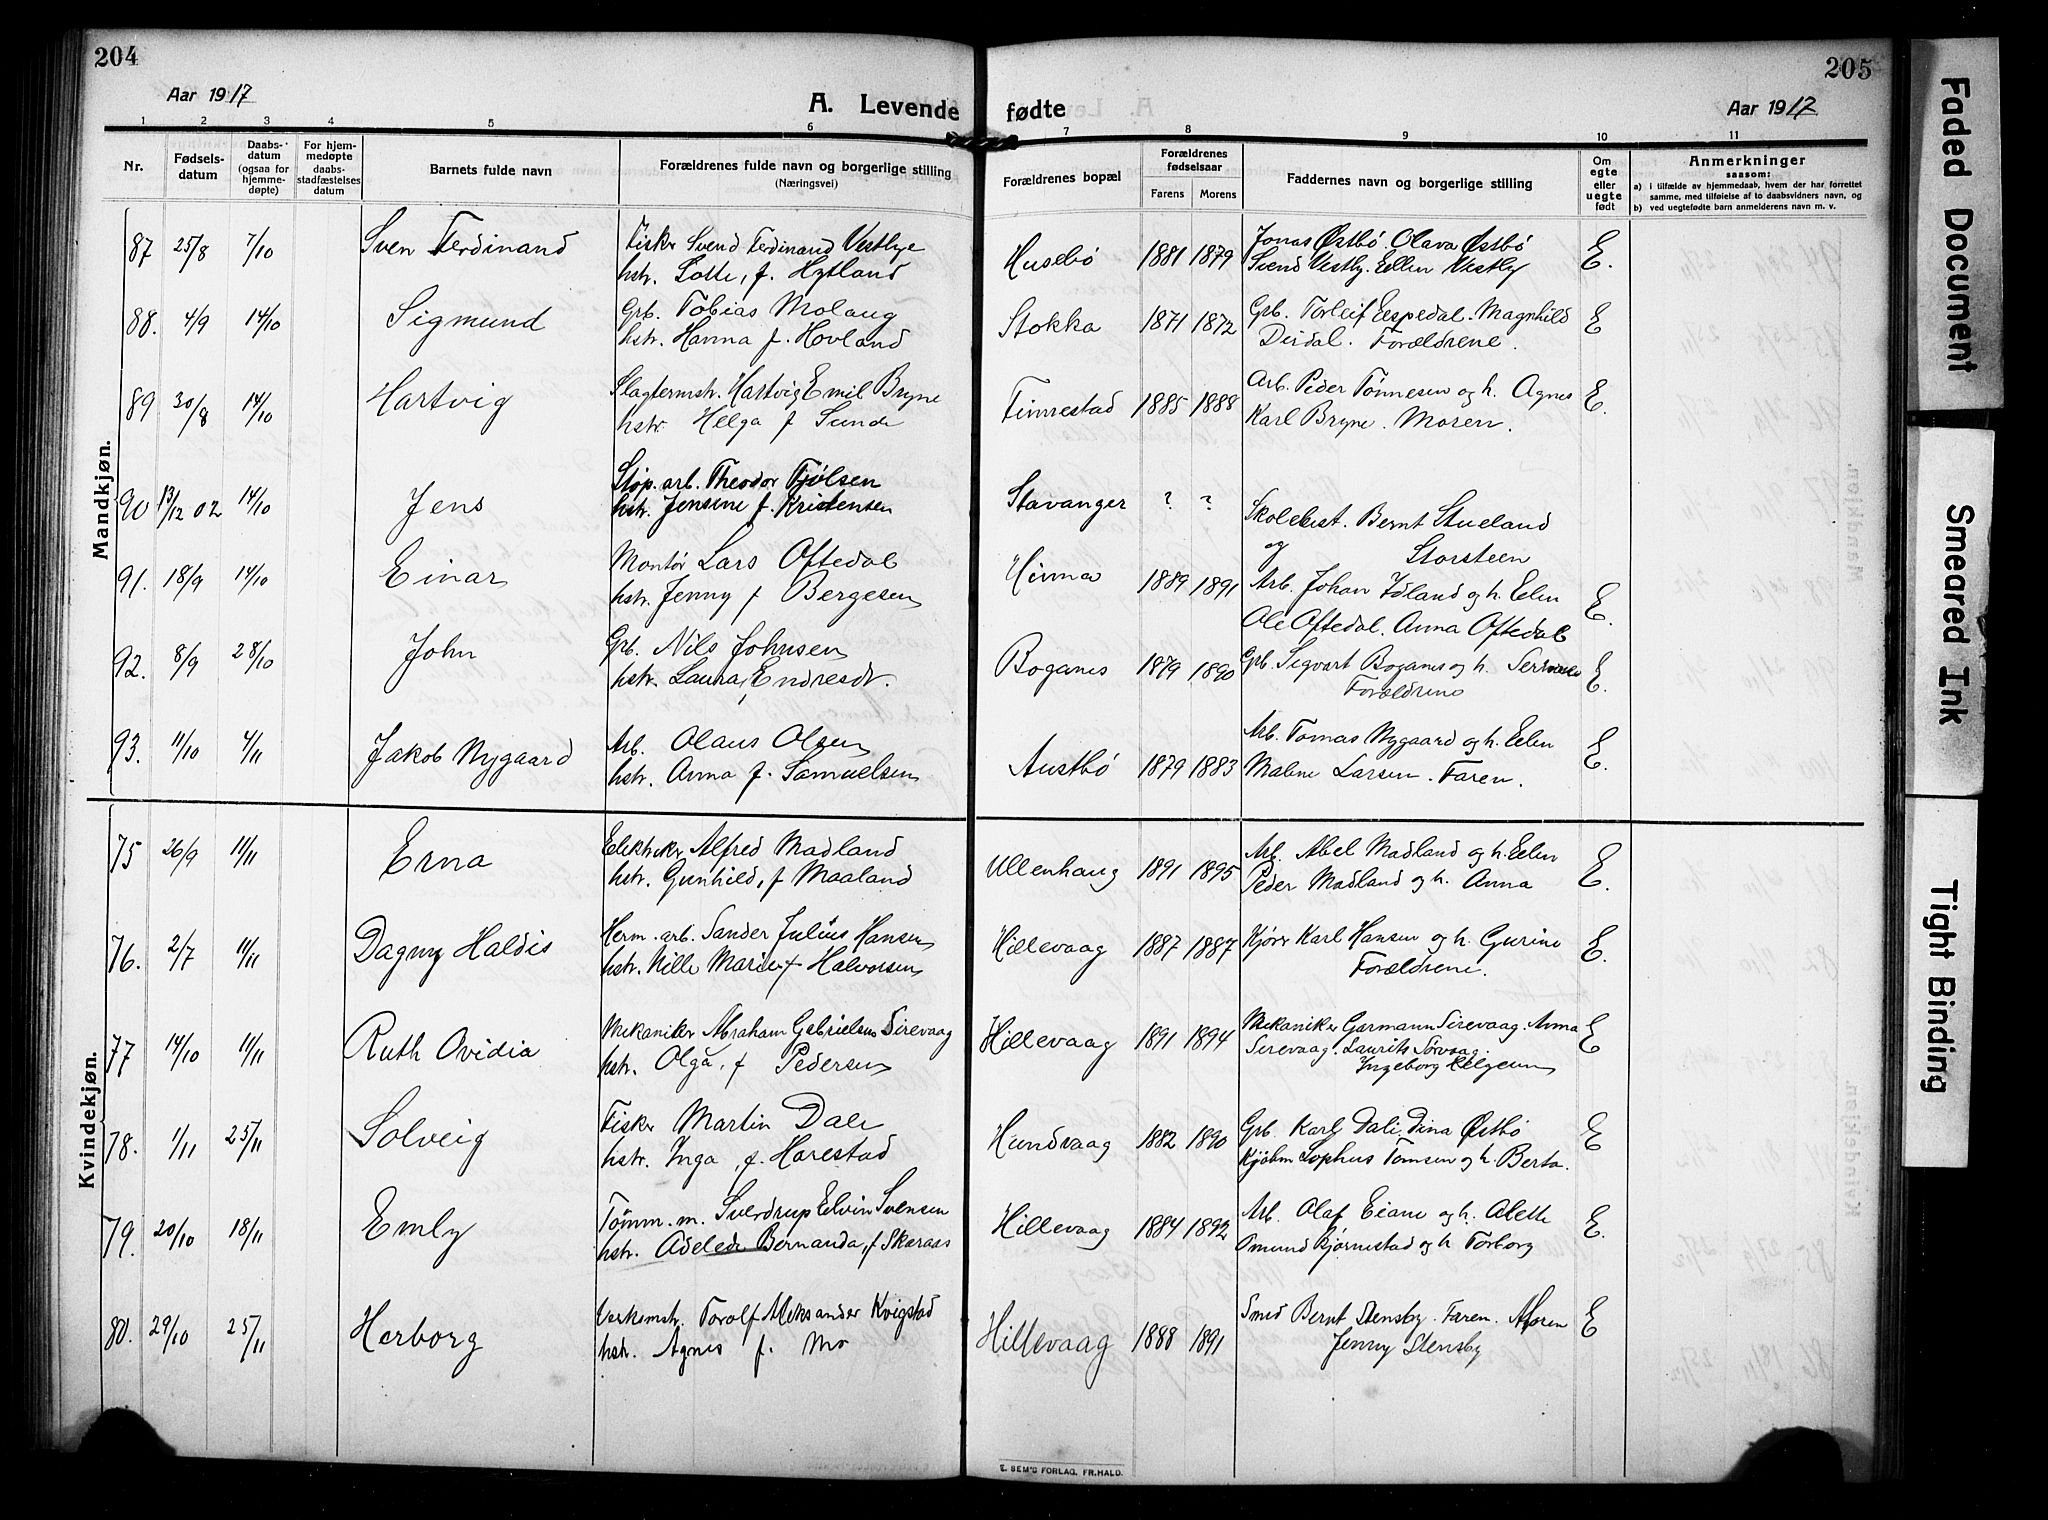 204
205
Aar 1917
A. Levende fødte
Aar 1917
1 2 3 4 5 6 7 8 9 10 11
Nr.
Fødsels-datum
Daabs-datum (ogsaa for hjemme-døpte)
For hjem-medøpte daabs-stadfæstelses datum
Barnets fulde navn
Forældrenes fulde navn og borgerlige stilling
(Næringsvei)
Forældrenes bopæl
Forældrenes fødselsaar
Farens Morens
Faddernes navn og borgerlige stilling
Om egte eller uegte født
Anmerkninger
saasom:
a) i tilfælde av hjemmedaab, hvem der har forrettet samme, med tilføielse af to daabsvidners navn, og
b) ved uegtefødte barn anmelderens navn m. v.
Mandkjøn.
87 25/8 7/10 Sven Ferdinand Fisker Svend Ferdinand Vestbye Husebø 1881 1879 Jonas Østbø. Olava Østbø E.
hstr. Lotte, f. Hytland Svend Vestby. Ellen Vestby
88. 4/9 14/10 Sigmund Grb. Tobias Molaug Stokka 1871 1872 Grb. Torleif Espedal. Magnhild E
hstr. Hanna f. Hovland Dirdal. Forældrene.
89 30/8 14/10 Hartvig Slagtermstr. Hartvig Emil Bryne Finnestad 1885 1888 Arb. Peder Tønnesen og h. Agnes E.
hstr. Helga f Sunde Karl Bryne. Moren.
90 13/12 02 14/10 Jens Støp. arb. Theodor Fjølsen Stavanger ? ? Skolebest. Bernt Stueland
hstr. Jensine f. Kristensen og Storsteen
91. 18/9 14/10 Einar Montør Lars Oftedal Hinna 1889 1891 Arb. Johan Idland og h. Elen E.
hstr. Jenny f Bergesen Ole Oftedal. Anna Oftedal
92. 8/9 28/10 John Grb. Nils Johnsen Boganes 1879 1890 Grb. Sigvart Boganes og h. E.
hstr. Laura, Endresdt. Forældrene
93. 11/10 4/11 Jakob Nygaard Arb. Olaus Olsen Austbø 1879 1883 Arb. Tomas Nygaard og h. Elen E.
hstr. Anna f. Samuelsen Malene Larsen. Faren.
Kvindekjøn.
75 26/9 11/11 Erna Elektriker Alfred Madland Ullenhaug 1891 1895 Arb. Abel Madland og h. Elen E.
hstr. Gunhild, f Maaland Peder Madland og h. Anna
76. 2/7 11/11 Dagny Haldis Herm. arb. Sander Julius Hansen Hillevaag 1887 1887 Kjører Karl Hansen og h. Gurine E.
hstr. Nille Marie f Halvorsen Forældrene.
77 14/10 11/11 Ruth Ovidia Mekaniker Abraham Gabrielsen Sirevaag Hillevaag 1891 1894 Mekaniker Garmann Sirevaag. Anna E
hstr. Olga, f Pedersen Sirevaag. Laurits Sørvaag.
Ingeborg Helgesen
78. 1/11 25/11 Solveig Fisker Martin Dale Hundvaag 1882 1890 Grb. Karl Dale. Dina Østbø E
hstr. Inga, f. Harestad Kjøbm Sophus Tomsen og h. Berta.
79. 20/10 18/11 Emly Tømm. m. Sverdrup Elvin Svensen Hillevaag 1884 1892 Arb. Olaf Eiane og h. Alette E.
hstr. Adelede Bernanda, f Skeraas Omund Kjørnestad og h Torborg
80. 29/10 25/11 Herborg Verksmstr. Torolf Aleksander Kvigstad Hillevaag 1888 1891 Smed Bernt Stensby. Faren. Moren E
hstr. Agnes f. Mo Jenny Stensby
E. SEM'S FORLAG, FR.HALD.
Faded Document
Smeared Ink
Tight Binding